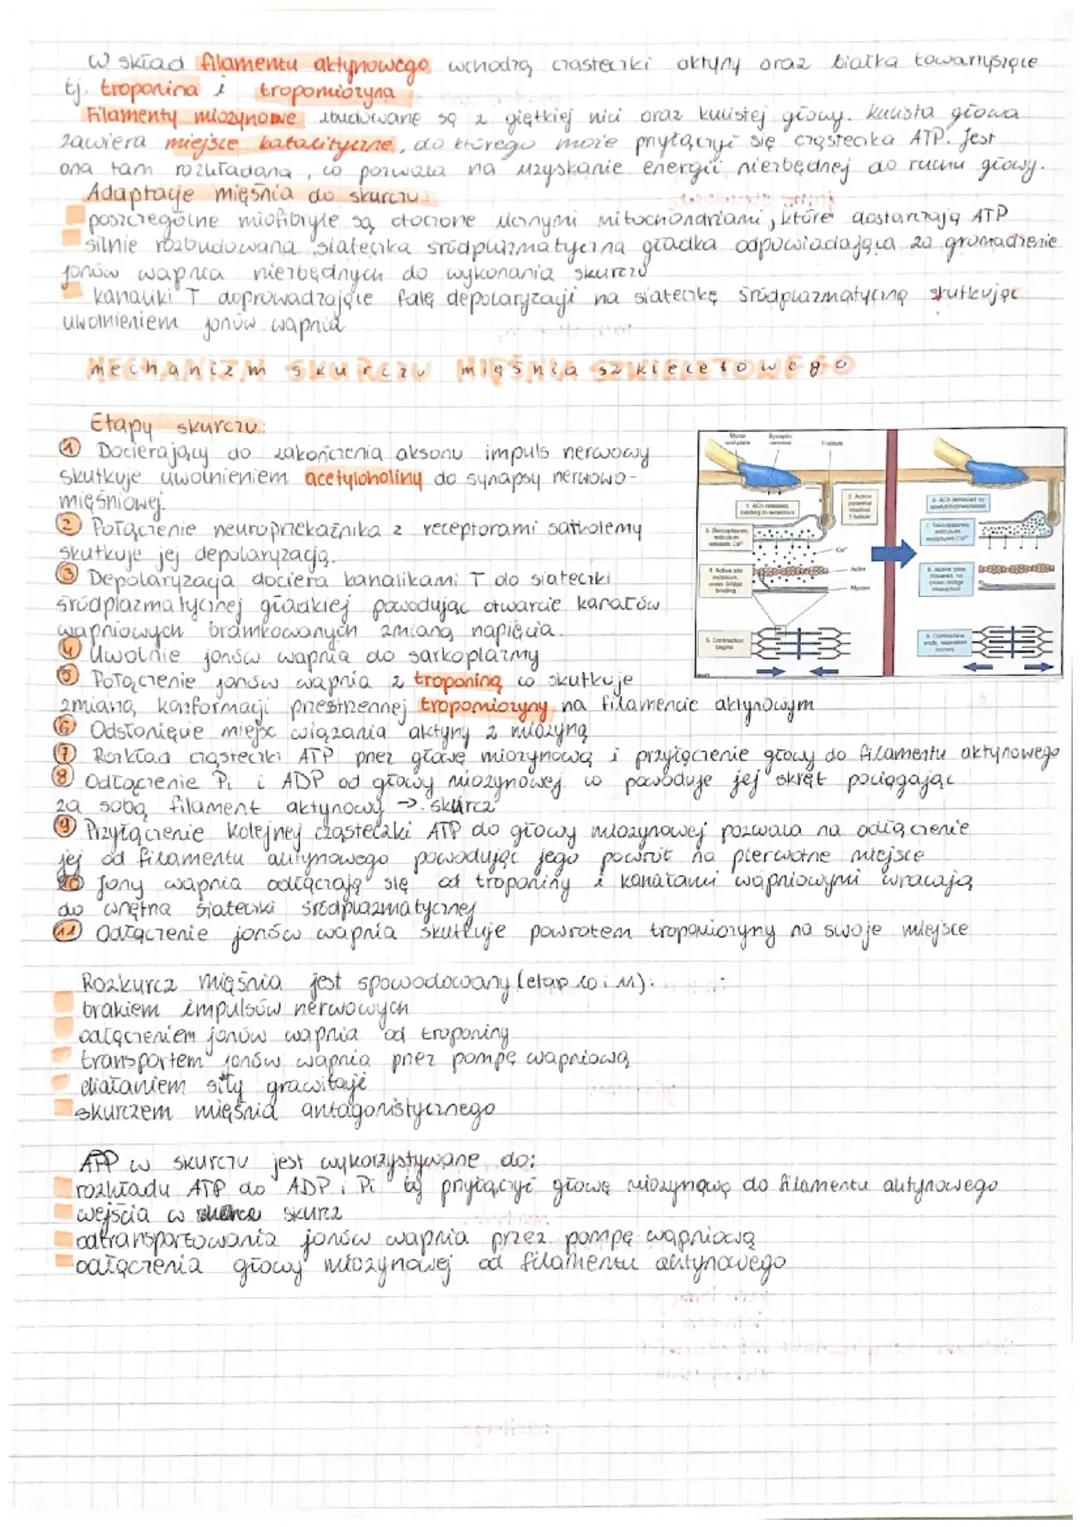 W skład filamentu aktynowego wchodzą cząsteczki aktyny oraz białka towarzyszące
tj. troponina i tropomiozyna
Filamenty miozynowe zbudowane są z giętkiej nici oraz kulistej głowy. Kulista głowa
zawiera miejsce katalityczne, do którego może przyłączyć się cząsteczka ATP. Jest
ona tam rozkładana, co pozwala na uzyskanie energii niezbędnej do ruchu głowy.
Adaptacje mięśnia do skurczu:
poszczególne miofibryle są otoczone licznymi mitochondriami, które dostarczają ATP
silnie rozbudowana siateczka śródplazmatyczna gładka odpowiadająca za gromadzenie
jonów wapnia niezbędnych do wykonania skurczu
kanaliki T doprowadzające falę depolaryzacji na siateczkę śródplazmatyczną skutkując
uwolnieniem jonów wapnia
Mechanizm skurczu mięśnia szkieletowego
Etapy skurczu:
1 Docierający do zakończenia aksonu impuls nerwowy
skutkuje uwolnieniem acetylocholiny do synapsy nerwowo-
mięśniowej.
2 Połączenie neuroprzekaźnika z receptorami sarkolemy
skutkuje jej depolaryzacją.
3 Depolaryzacja dociera kanalikami T do siateczki
śródplazmatycznej gładkiej powodując otwarcie kanałów
wapniowych bramkowanych zmianą napięcia.
4 Uwolnie jonów wapnia do sarkoplazmy
5 Połączenie jonów wapnia z troponiną co skutkuje
zmianą konformacji przestrzennej tropomiozyny na filamencie aktynowym
6 Odsłonięcie miejsc wiązania aktyny z miozyną
7 Rozkład cząsteczki ATP przez głowę miozynową i przyłączenie głowy do filamentu aktynowego
8 Odłączenie Pi i ADP od głowy miozynowej co powoduje jej skręt pociągając
za sobą filament aktynowy → skurcz
9 Przyłączenie kolejnej cząsteczki ATP do głowy miozynowej pozwala na odłączenie
jej od filamentu aktynowego powodując jego powrót na pierwotne miejsce
10 Jony wapnia odłączają się od troponiny i kanałami wapniowymi wracają
do wnętrza siateczki śródplazmatycznej
11 Odłączenie jonów wapnia skutkuje powrotem tropomiozyny na swoje miejsce
Rozkurcz mięśnia jest spowodowany (etap 10 i 11):
brakiem impulsów nerwowych
odłączeniem jonów wapnia od troponiny
transportem jonów wapnia przez pompę wapniową
działaniem siły grawitacji
skurczem mięśnia antagonistycznego
ATP w skurczu jest wykorzystywane do:
rozkładu ATP do ADP i Pi by przyłączyć głowę miozynową do filamentu aktynowego
wejścia w skurcz
odtransportowania jonów wapnia przez pompę wapniową
odłączenia głowy miozynowej od filamentu aktynowego
Motor end plate
Synaptic
1. ACh released, binding to receptors
2. Action potential reaches T tubule
3. Sarcoplasmic reticulum releases Ca²⁺
Ca²⁺
Actin
Myosin
5. Contraction begins
6. ACh removed by acetylcholinesterase
7. Sarcoplasmic reticulum recaptures Ca²⁺